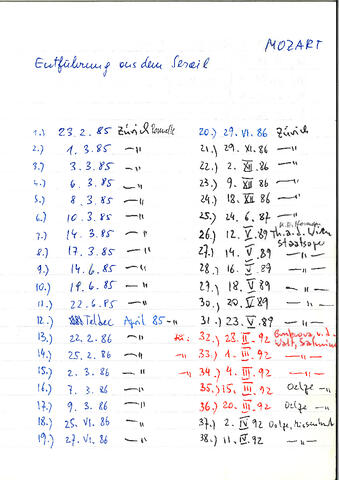 MOZART
Entführung aus dem Serail
1.) 23.2.85 Zürich
2.) 1.3.85 —"
3.) 3.3.85 —"
4.) 6.3.85 —"
5.) 8.3.85 —"
6.) 10.3.85 —"
7.) 14.3.85 —"
8.) 17.3.85 —"
9.) 14.6.85 —"
10.) 19.6.85 —"
11.) 22.6.85 —"
12.) Teldec April 85 —"
13.) 22.2.86 —"
14.) 25.2.86 —"
15.) 2.3.86 —"
16.) 7.3.86 —"
17.) 9.3.86 —"
18.) 25.VI.86 —"
19.) 27.VI.86 —"
20.) 29.VI.86 Zürich
21.) 29.XI.86 —"—
22.) 2.XII.86 —"—
23.) 9.XII.86 —"—
24.) 18.XII.86 —"—
25.) 24.6.87 —"—
26.) 12.V.89 Th.a.d. Wien
Staatsoper
27.) 14.V.89 —"—
28.) 16.V.89 —"—
29.) 18.V.89 —"—
30.) 20.V.89 —"—
31.) 23.V.89 —"—
32.) 28.II.92
33.) 1.III.92 —"—
34.) 4.III.92 —"—
35.) 15.III.92 Oelze —"—
36.) 20.III.92 Oelze —"—
37.) 2.IV.92 Oelze,
38.) 11.IV.92 —"—